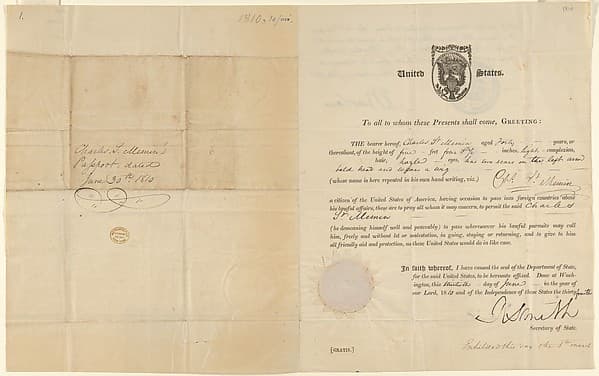 1.
1810
Charles St. Memin's
Passport. dated
June 30th 1810
United States.
To all to whom these Presents shall come, GREETING:
THE bearer hereof, Charles St Memin aged Forty years, or
thereabout, of the height of five feet four inches, light complexion,
hair, hazle eyes, has two scars on the left arm
bald head and wears a wig
(whose name is here repeated in his own hand writing, viz.) St. Memin
a citizen of the United States of America, having occasion to pass into foreign countries about
his lawful affairs, these are to pray all whom it may concern, to permit the said Charles
St Memin
(he demeaning himself well and peaceably) to pass wheresoever his lawful pursuits may call
him, freely and without let or molestation, in going, staying or returning, and to give to him
all friendly aid and protection, as these United States would do in like case.
In faith whereof, I have caused the seal of the Department of State,
for the said United States, to be hereunto affixed. Done at Wash-
ington, this thirtieth day of June in the year of
our Lord, 1810 and of the Independence of these States the thirty fourth
R Smith
Secretary of State.
[GRATIS.]